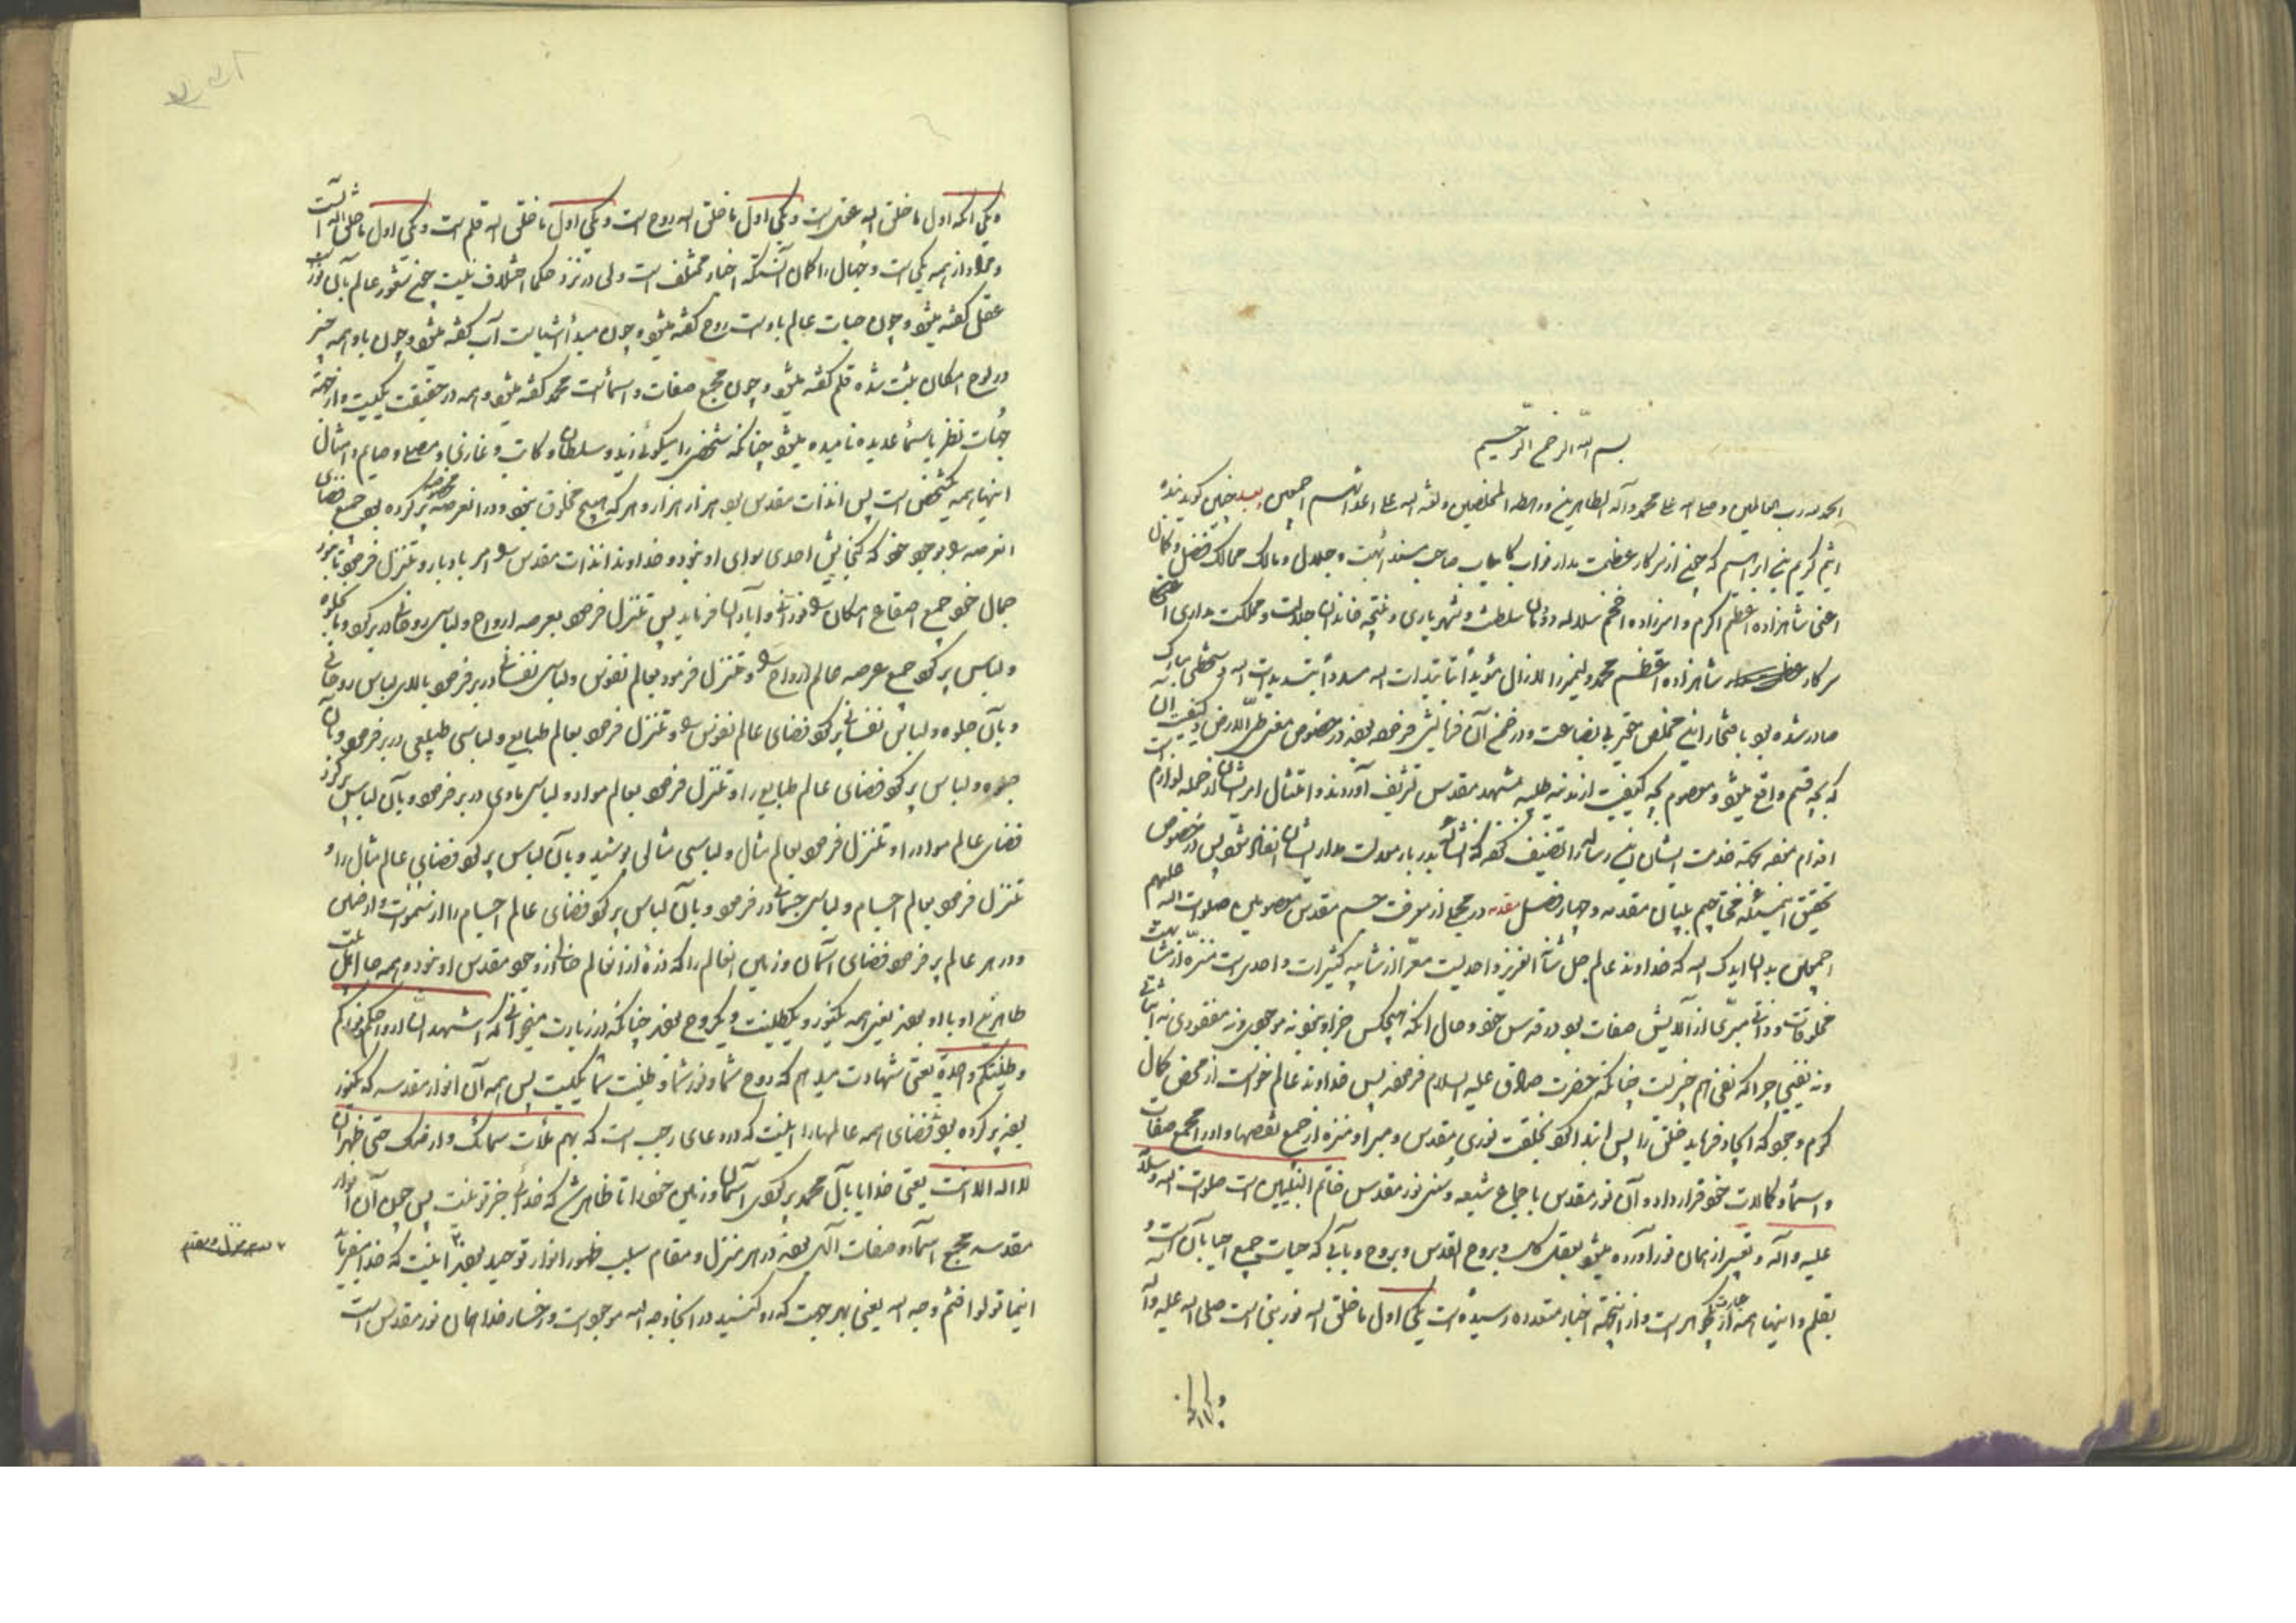 بسم الله الرحمن الرحیم
الحمد لله رب العالمین و صلی الله علی محمد و آله الطاهرین و رهطه المخلصین و لعنة الله علی اعدائهم اجمعین و بعد چنین گوید بنده
اثیم کریم بن ابراهیم که چون از سرکار عظمت مدار نواب کامیاب صاحب مسند ابهت و جلال و مالک ممالک فضل و کمال
اعنی شاهزاده اعظم اکرم و امیرزاده افخم سلاله دودمان سلطنت و شهریاری و نتیجه خاندان جلالت و مملکت مداری اعنی
سرکار شاهزاده اعظم محمد ولی میرزا لازال مؤیداً بتائیدات الله و مسدداً بتسدیدات الله دستخطی مبارک
صادر شده بود بافتخار این مخلص حقیر بی بضاعت و در ضمن آن فرمایش فرموده بودند در خصوص معنی طی الارض و کیفیت آن
که بچه قسم واقع میشود و معصوم بچه کیفیت از مدینه طیبه بمشهد مقدس تشریف آوردند و امتثال امر ایشان از جمله لوازم است
اقدام نموده بجهة خدمت ایشان این رساله را تصنیف کرده که انشاء الله بدربار معدلت مدار ایشان انفاذ شود پس در خصوص
تحقیق این مسئله محتاجیم ببیان مقدمه و چهار فصل مقدمه در مجملی از معرفت جسم مقدس معصومین صلوات الله علیهم
اجمعین بدان ایدک الله که خداوند عالم جل شأنه العزیز واحدیست معرا از شایبه کثیرات و احدیست منزه از مشابهت
مخلوقات و ذاتی مبری از آلایش صفات بود در قدس خود و حال آنکه هیچکس جز او نبود نه موجودی و نه مفقودی نه اثباتی
و نه نفیی چرا که نفی هم چیزیست چنانکه حضرت صادق علیه السلام فرموده پس خداوند عالم خواست از محض کمال
کرم و جود که ایجاد فرماید خلق را پس ابتدا کرد بخلقت نوری مقدس و مبرا و منزه از جمیع نقصها و او را مجمع صفات
و اسماء و کمالات خود قرار داد و آن نور مقدس باجماع شیعه و سنی نور مقدس خاتم النبیین است صلوات الله و سلامه
علیه و آله و تعبیر از همان نور آورده میشود بعقل کل و بروح القدس و بروح و بآبی که حیات جمیع احیا بآن است و
بقلم و اینها همه عبارت از یک جوهر است و از اینجهة اخبار متعدده رسیده است یکی اول ما خلق الله نور نبی است صلی الله علیه و آله
و یکی آنکه
و یکی آنکه اول ما خلق الله عقل است و یکی اول ما خلق الله روح است و یکی اول ما خلق الله قلم است و یکی اول ما خلق الله آب است
و مراد از همه یکی است و جهال را گمان آنستکه اخبار مختلف است ولی در نزد حکما اختلاف نیست چون شعور عالم بآن نور است
عقل گفته میشود و چون حیات عالم باوست روح گفته میشود و چون مبدأ اشیا است آب گفته میشود و چون باو همه چیز
در لوح امکان ثبت شده قلم گفته میشود و چون مجمع صفات و اسمائست محمد گفته میشود و همه در حقیقت یکیست و از جهة
جهات نظر باسماء عدیده نامیده میشود چنانکه شخصی را میگوئی زید و سلطان و کاتب و غازی و مصلی و صایم و امثال
اینها همه یکشخص است پس آن ذات مقدس بود هزار هزار دهر که هیچ مخلوق نبود و در آن عرصه پر کرده بود جمیع فضای
آن عرصه را بوجود خود که گنجایش احدی سوای او نبود و خداوند آن ذات مقدس را امر باد بار و تنزل فرمود تا بنور
جمال خود جمیع اصقاع امکان را نورانی و آبادان فرماید پس تنزل فرمود بعرصه ارواح و لباسی روحانی در بر کرد و بآن جلوه
و لباس پر کرد جمیع عرصه عالم ارواح را و تنزل فرمود بعالم نفوس و لباسی نفسانی در بر فرمود بالای لباس روحانی
و بآن جلوه و لباس نفسانی پر کرد فضای عالم نفوس را و تنزل فرمود بعالم طبایع و لباسی طبیعی در بر فرمود و بآن
جلوه و لباس پر کرد فضای عالم طبایع را و تنزل فرمود بعالم مواد و لباسی مادی در بر فرمود و بآن لباس پر کرد
فضای عالم مواد را و تنزل فرمود بعالم مثال و لباسی مثالی پوشید و بآن لباس پر کرد فضای عالم مثال را و
تنزل فرمود بعالم اجسام و لباسی جسمانی در بر فرمود و بآن لباس پر کرد فضای عالم اجسام را از سموات و ارضین
و در هر عالم پر فرمود فضای آسمان و زمین آنعالم را که ذره از آنعالم خالی از وجود مقدس او نبود و همه جا اهل بیت
طاهرین او با او بودند یعنی همه یکنور و یکطینت و یکروح بودند چنانکه در زیارت میخوانی که اشهد ان ارواحکم و نورکم
و طینتکم واحدة یعنی شهادت میدهم که روح شما و نور شما و طینت شما یکیست پس همه آن انوار مقدسه که یکنور
بودند پر کرده بودند فضای همه عالمها را اینست که در دعای رجب است که بهم ملأت سمائک و ارضک حتی ظهر ان
لا اله الا انت یعنی خدایا بآل محمد پر کردی آسمان و زمین خود را تا ظاهر شد که خدائی جز تو نیست پس چون آن انوار
مقدسه مجمع اسماء و صفات الهی بودند در هر منزل و مقام سبب ظهور انوار توحید بودند اینست که خدا میفرماید
اینما تولوا فثم وجه الله یعنی بهر جهت که رو کنید در آنجا وجه الله موجود است و رخسار خدا همان نور مقدس است